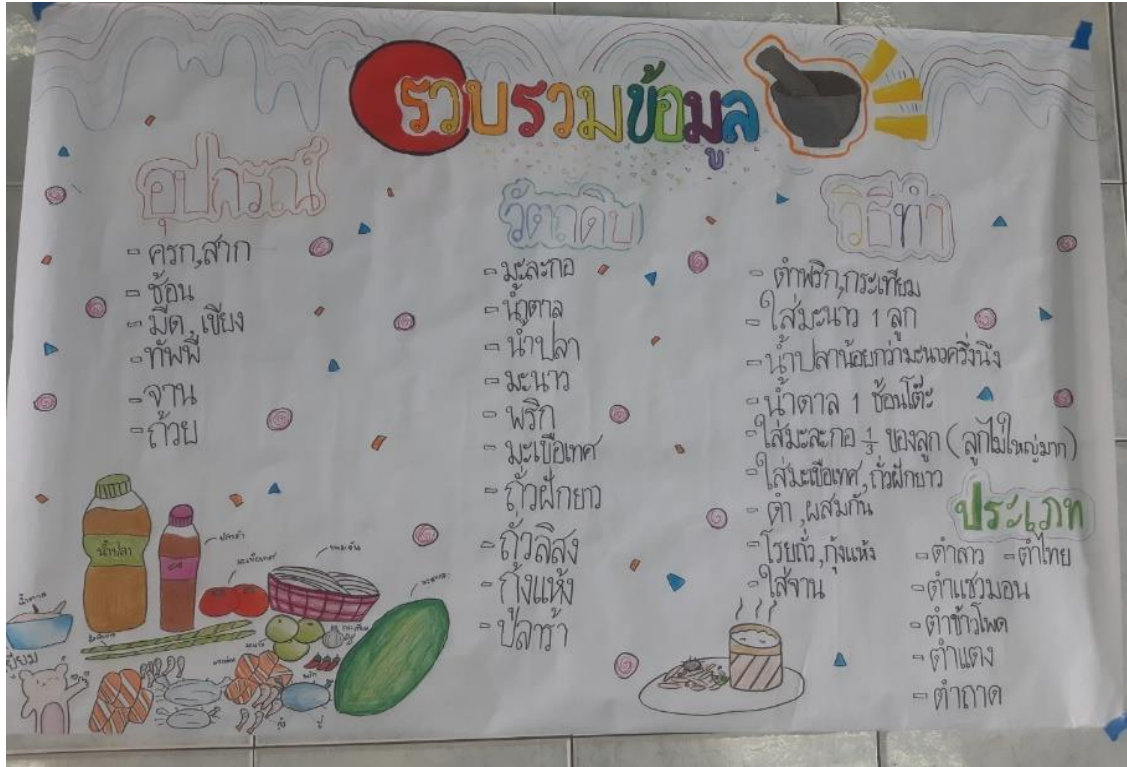 รวบรวมข้อมูล
อุปกรณ์
- ครก,สาก
- ช้อน
- มีด,เขียง
- ทัพพี
- จาน
- ถ้วย
วัตถุดิบ
- มะละกอ
- น้ำตาล
- น้ำปลา
- มะนาว
- พริก
- มะเขือเทศ
- ถั่วฝักยาว
- ถั่วลิสง
- กุ้งแห้ง
- ปลาร้า
วิธีทำ
- ตำพริก,กระเทียม
- ใส่มะนาว 1 ลูก
- น้ำปลาน้อยกว่ามะนาวครึ่งนึง
- น้ำตาล 1 ช้อนโต๊ะ
- ใส่มะละกอ 1/3 ของลูก (ลูกไม่ใหญ่มาก)
- ใส่มะเขือเทศ,ถั่วฝักยาว
- ตำ,ผสมกัน
- โรยถั่ว,กุ้งแห้ง
- ใส้จาน
ประเภท
- ตำลาว - ตำไทย
- ตำแซวมอน
- ตำข้าวโพด
- ตำแตง
- ตำถาด
น้ำปลา
ปลาร้า
มะเขือเทศ
ขนมจีน
มะละกอ
น้ำตาล